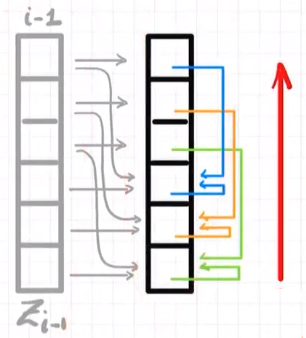 i-1
Zi-1